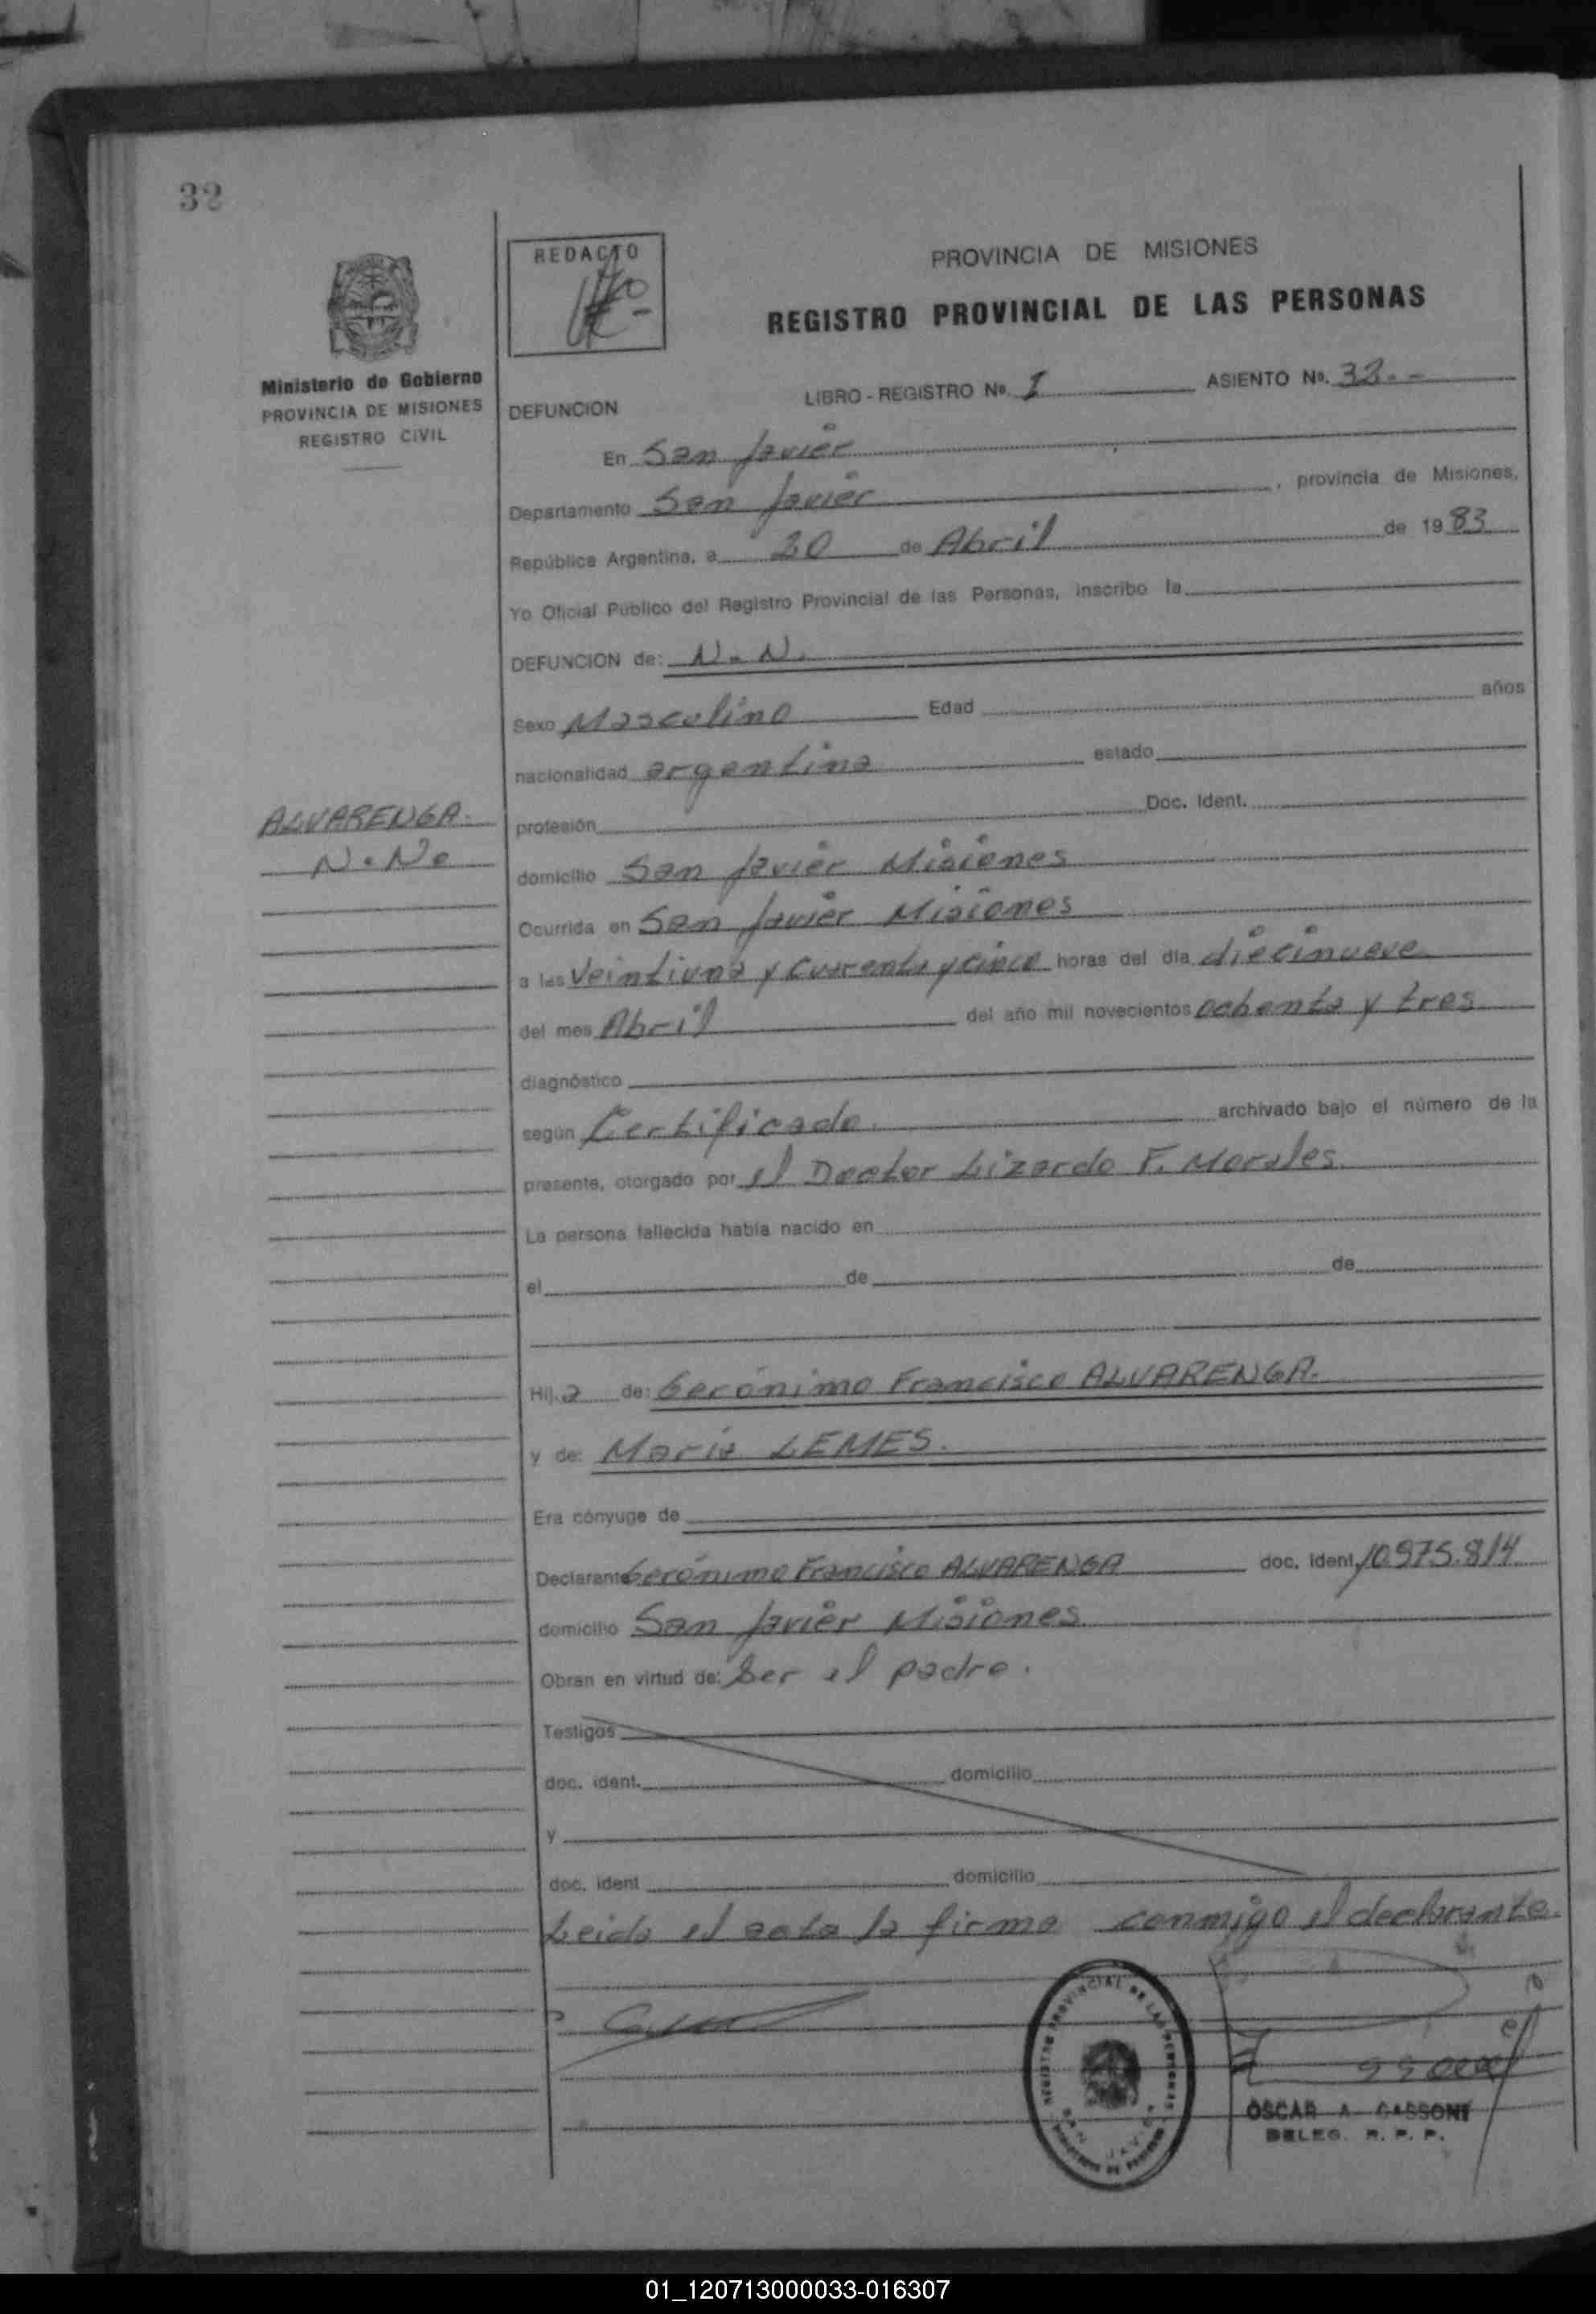 32
REDACTO
PROVINCIA DE MISIONES
REGISTRO PROVINCIAL DE LAS PERSONAS
Ministerio de Gobierno
PROVINCIA DE MISIONES
REGISTRO CIVIL
DEFUNCION
LIBRO - REGISTRO No. I ASIENTO No. 32.-
En San Javier
Departamento San Javier, provincia de Misiones,
República Argentina, a 20 de Abril de 1983
Yo Oficial Público del Registro Provincial de las Personas, inscribo la
DEFUNCION de: N.N.
Sexo Masculino Edad años
nacionalidad argentina estado
ALVARENGA.
N.N.
profesión Doc. Ident.
domicilio San Javier Misiones
Ocurrida en San Javier Misiones
a las Veintiuna y cuarenta y cinco horas del día diecinueve
del mes Abril del año mil novecientos ochenta y tres
diagnóstico
según Certificado. archivado bajo el número de la
presente, otorgado por el Doctor Lizardo F. Morales.
La persona fallecida había nacido en
el de de
Hij.a de: Gerónimo Francisco ALVARENGA.
y de: María LEMES.
Era cónyuge de
Declarante Gerónimo Francisco ALVARENGA doc. ident. 10.975.814
domicilio San Javier Misiones
Obran en virtud de: Ser el padre.
Testigos
doc. ident. domicilio
y
doc. ident domicilio
Leida el acta la firma conmigo el declarante.
REGISTRO PROVINCIAL DE LAS PERSONAS
SAN JAVIER
OSCAR A. GASSONI
DELEG. R. P. P.
01_120713000033-016307